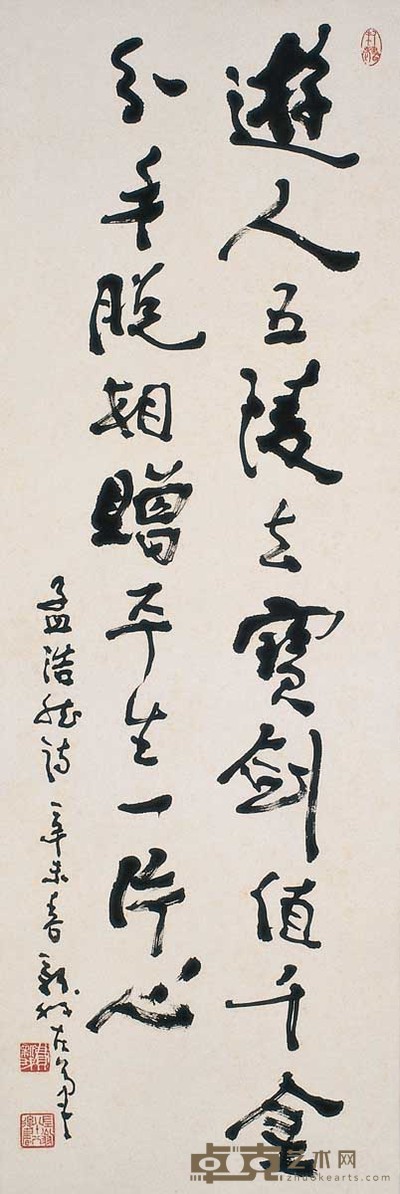 遊人五陵去寶劍值千金
分手脫相贈平生一片心
孟浩然詩辛未春
卓克艺术网
zhuokearts.com